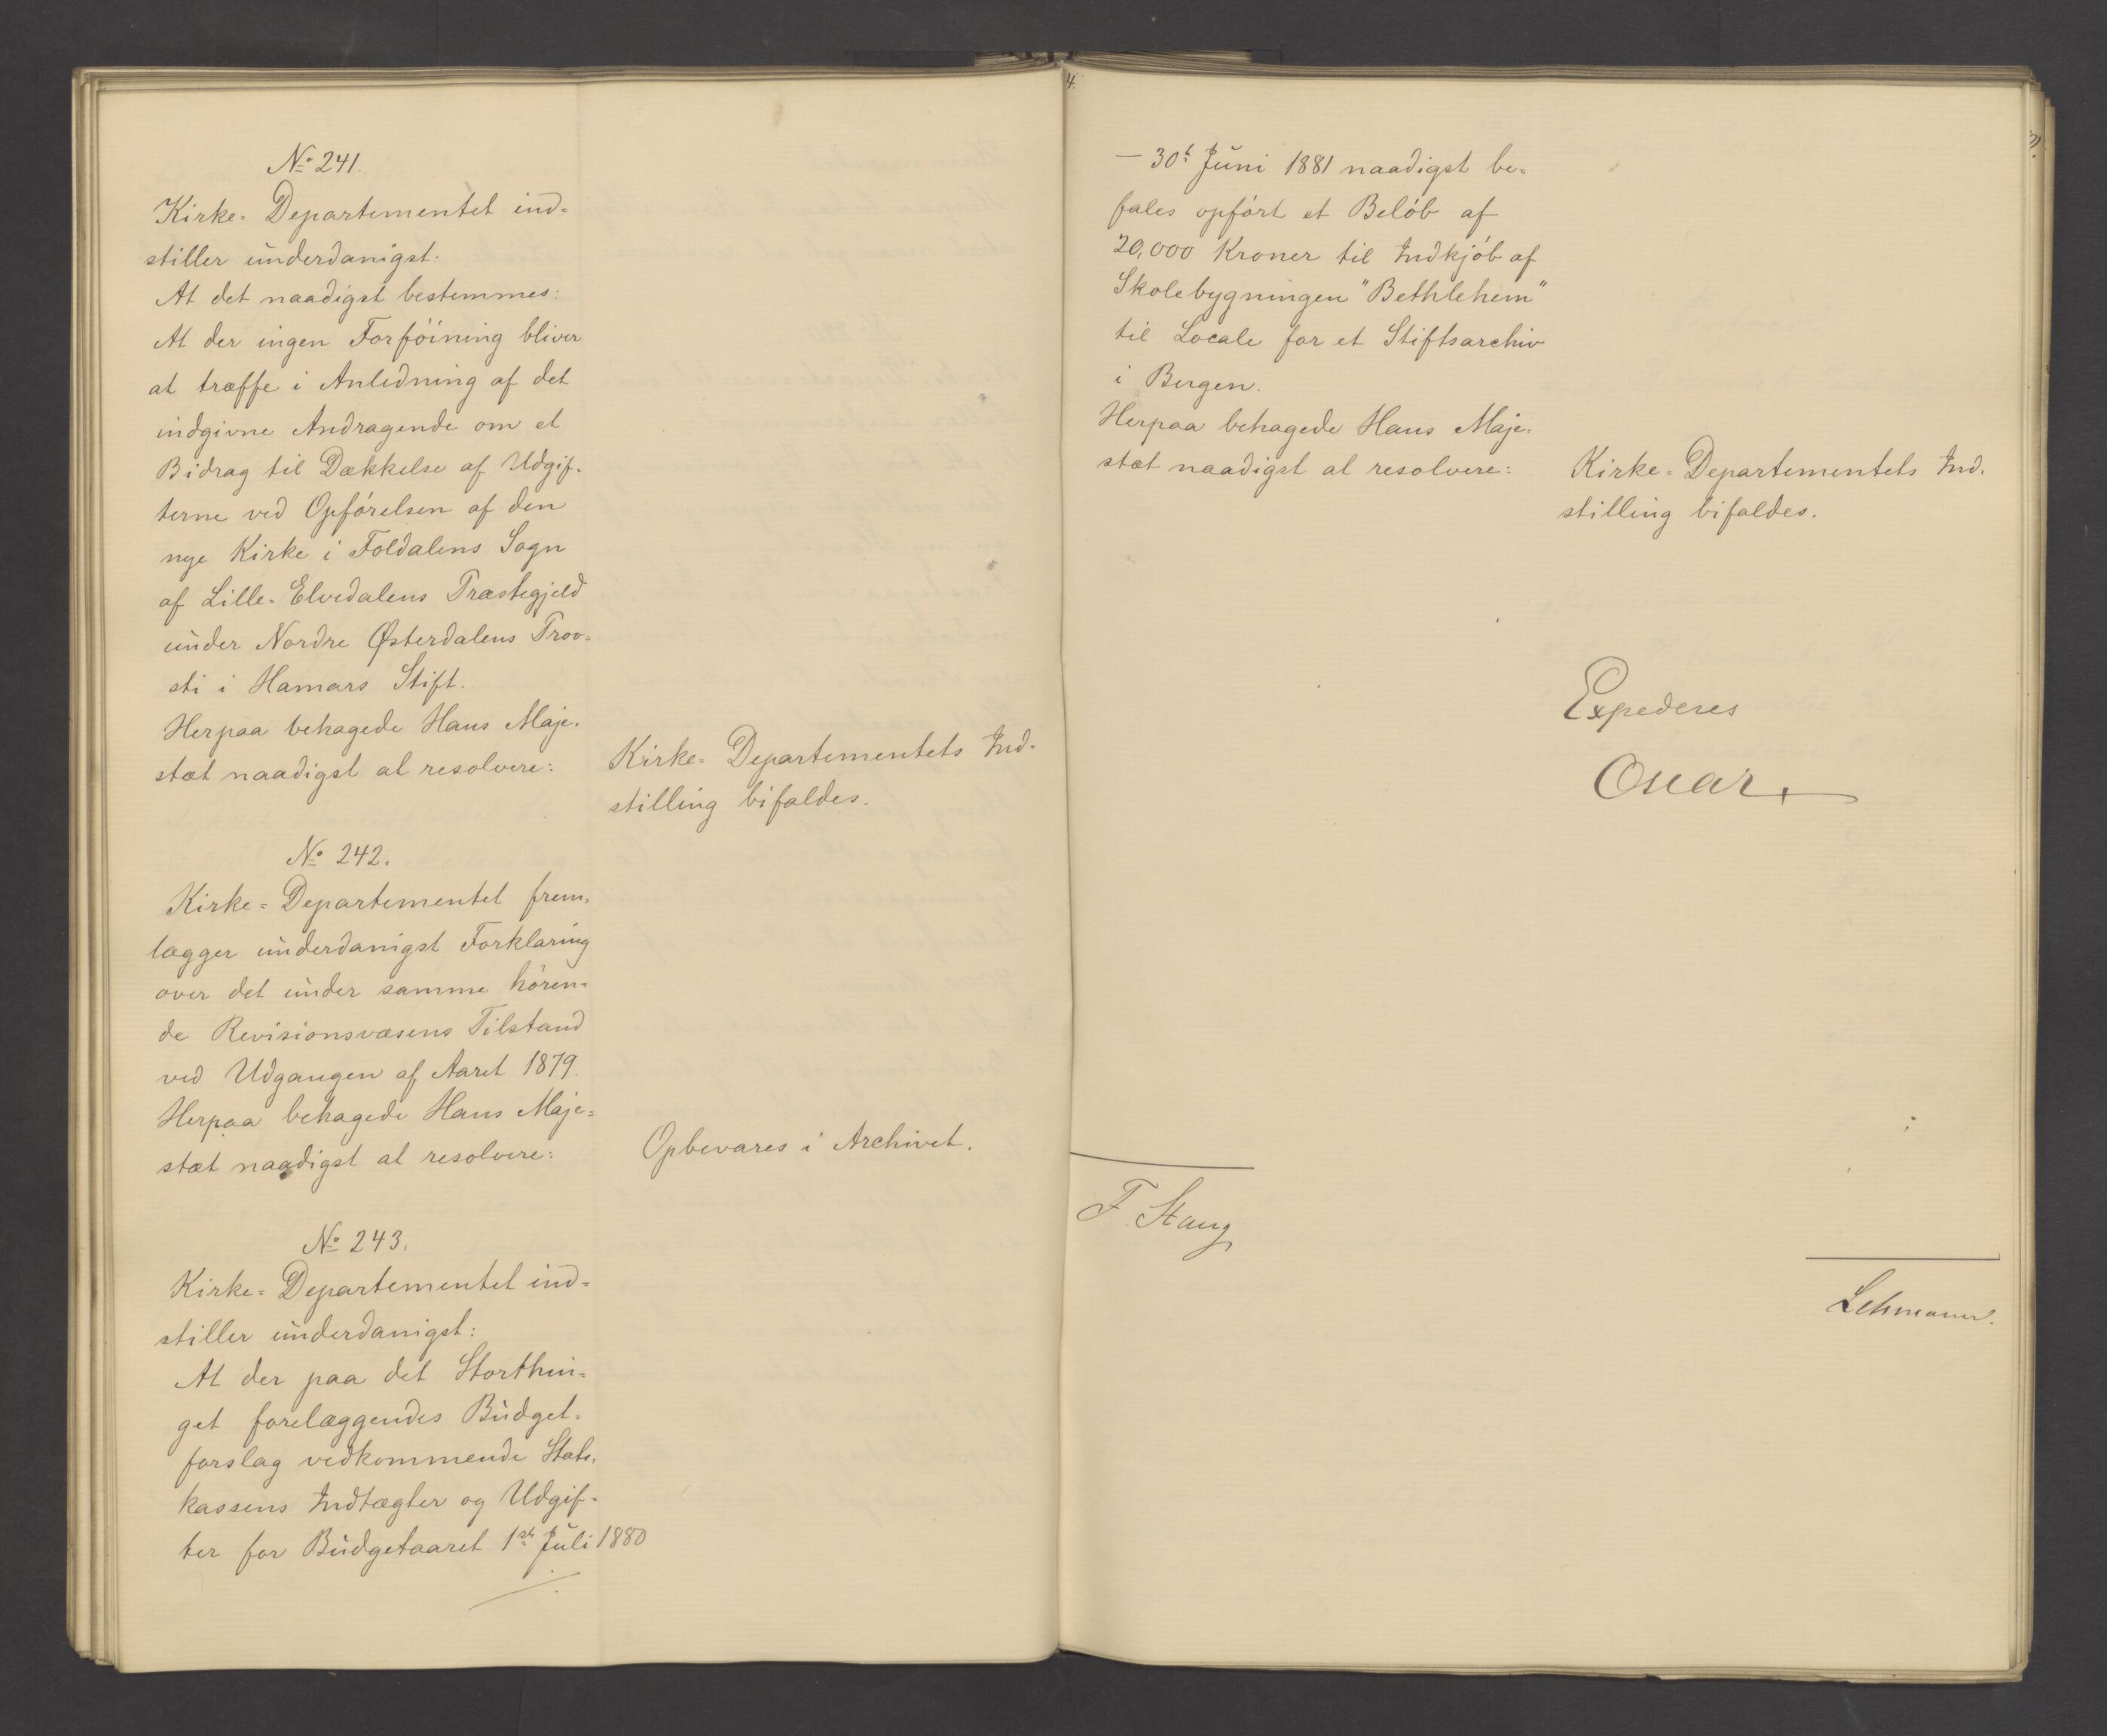 No 241.
Kirke-Departementet ind-
stiller underdanigst:
At det naadigst bestemmes:
At der ingen Forföining bliver
at træffe i Anledning af det
indgivne Andragende om et
Bidrag til Dækkelse af Udgif-
terne ved Opförelsen af den
nye Kirke i Foldalens Sogn
af Lille-Elvedalens Præstegjeld
under Nordre Østerdalens Prov-
sti i Hamars Stift.
Herpaa behagede Hans Maje-
stæt naadigst at resolvere:
Kirke-Departementets Ind-
stilling bifaldes.
No 242.
Kirke-Departementet frem-
lægger underdanigst Forklaring
over det under samme hören-
de Revisionsvæsens Tilstand
ved Udgangen af Aaret 1879.
Herpaa behagede Hans Maje-
stæt naadigst at resolvere:
Opbevares i Archivet.
No 243.
Kirke-Departementet ind-
stiller underdanigst:
At der paa det Storthin-
get forelæggendes Budget-
forslag vedkommende Stats-
kassens Indtægter og Udgif-
ter for Budgetaaret 1st Juli 1880
4.
— 30t Juni 1881 naadigst be-
fales opfört et Belöb af
20,000 Kroner til Indkjöb af
Skolebygningen "Bethlehem"
til Locale for et Stiftsarchiv
i Bergen.
Herpaa behagede Hans Maje-
stæt naadigst at resolvere:
Kirke-Departementets Ind-
stilling bifaldes.
Expederes
Oscar.
F. Stang
Lehmann.